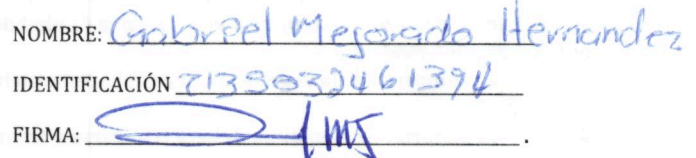 NOMBRE: Gabriel Mejorado Hernandez
IDENTIFICACIÓN 2135032461394
FIRMA: .